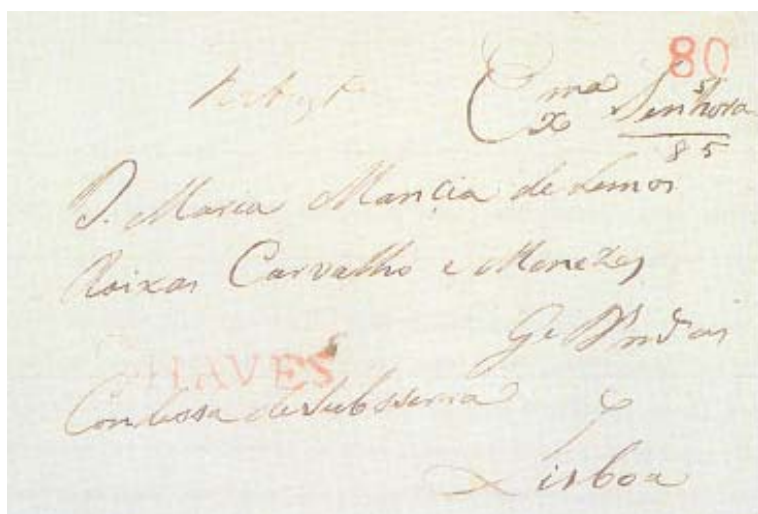 80
Exma Senhora
5
85
D. Maria Mancia de Lemos
Roixas Carvalho e Menezes
CHAVES
Condessa de Subsserra
Lisboa